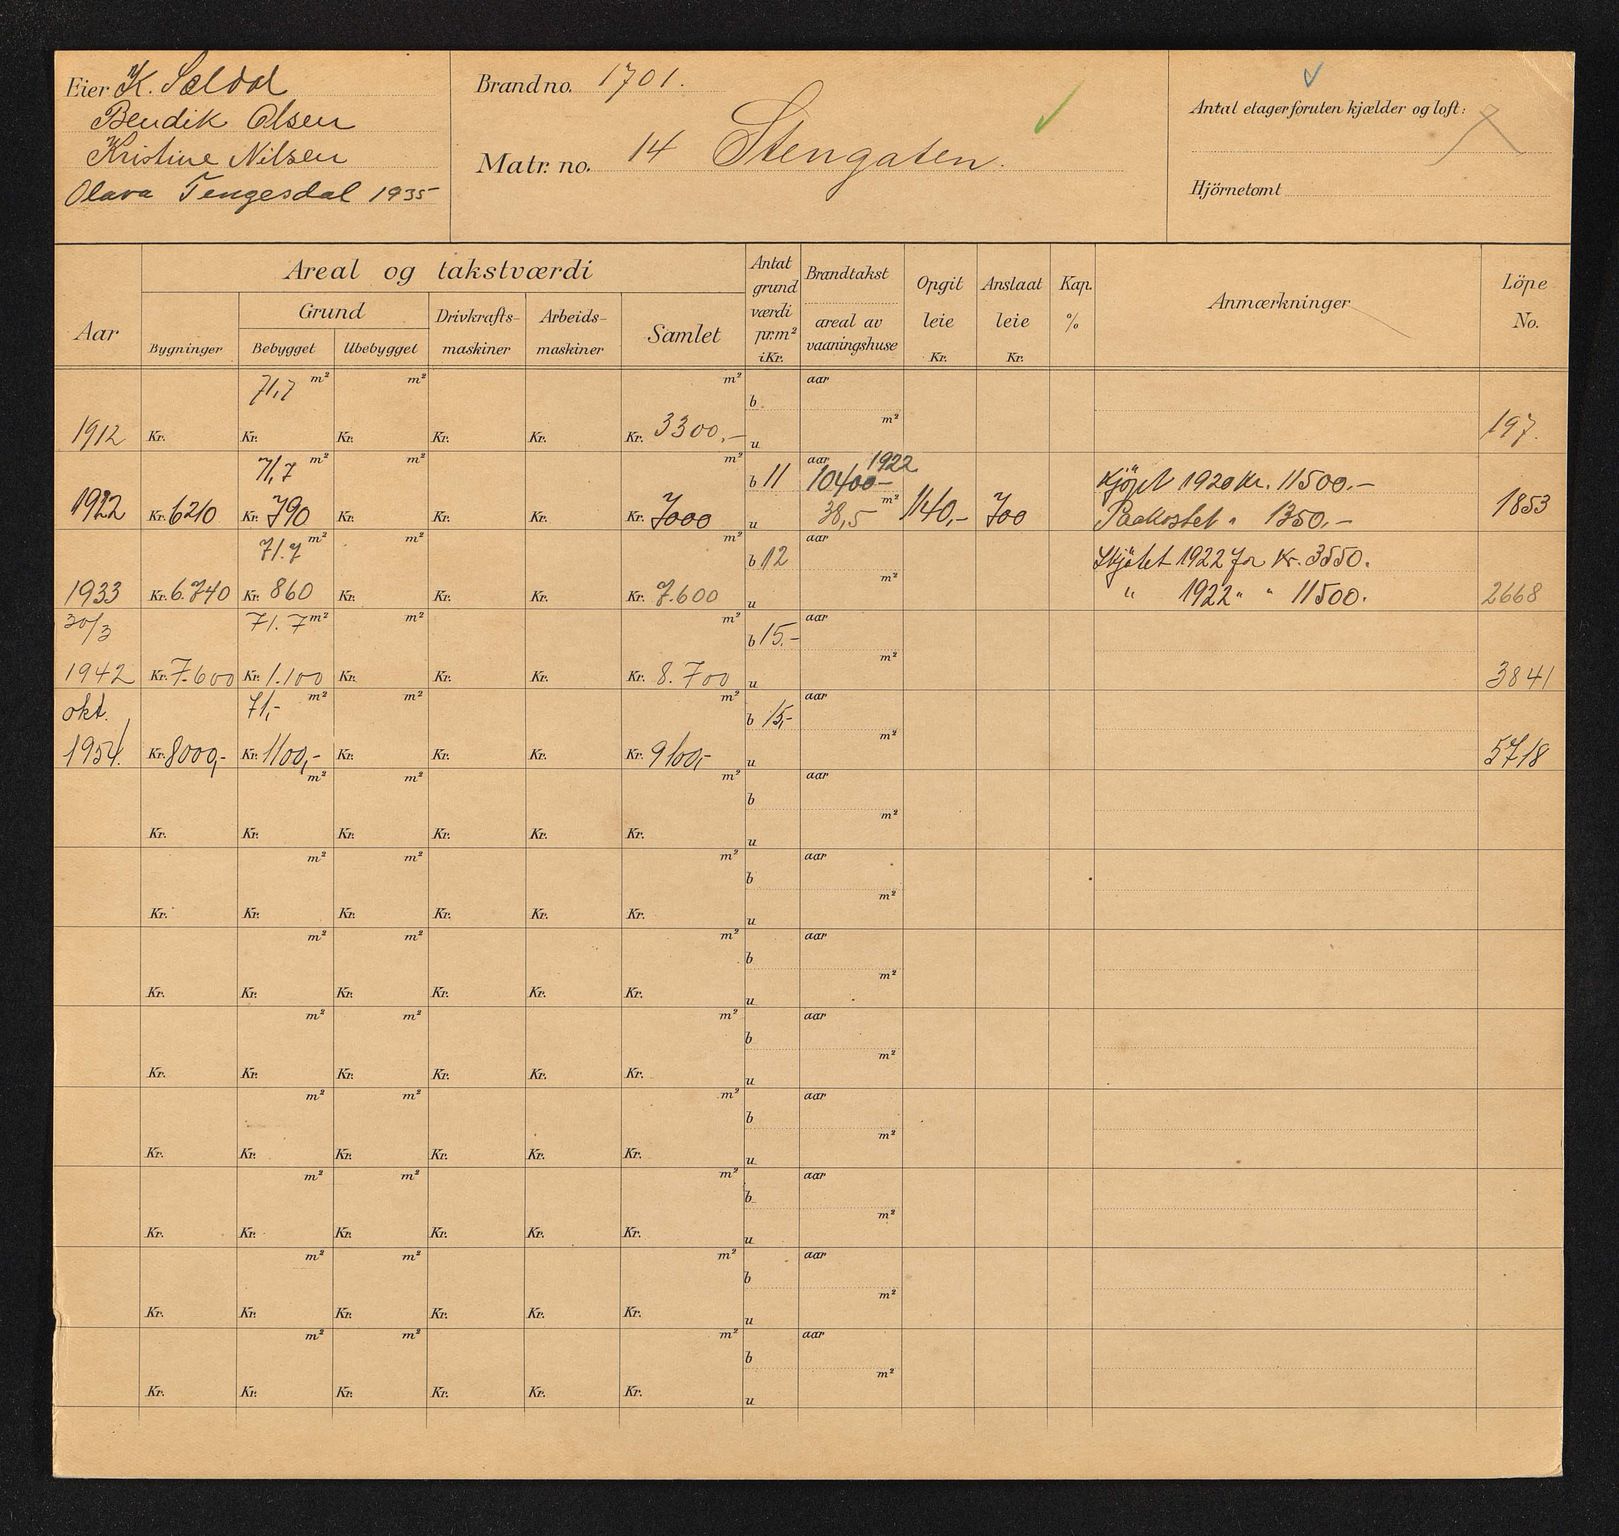 Eier K. Sældal
Bendik Olsen
Kristine Nilsen
Olava Tengesdal 1935
Brandno. 1701.
Matr. no. 14 Stengaten.
Antal etager foruten kjælder og loft:
Hjörnetomt
Aar
Areal og takstværdi
Bygninger
Grund
Bebygget Ubebygget
Drivkrafts-maskiner
Arbeids-maskiner
Samlet
Antat grund værdi pr.m² i Kr.
Brandtakst
areal av vaaningshuse
Opgit leie Kr.
Anslaat leie Kr.
Kap. %
Anmærkninger
Löpe No.
71,7 m² m² m² b aar m²
1912 Kr. Kr. Kr. Kr. Kr. Kr. 3300,- u 197.
71,7 m² m² m² b 11 aar 1922 10400- Kjöpt 1920 Kr. 11500.-
1922 Kr. 6210 Kr. 790 Kr. Kr. Kr. Kr. 7000 u 38,5 m² 1140,- 700 Paakostet " 1350,- 1853
71.7 m² m² m² b 12 aar m² Skjötet 1922 for Kr. 3550.
1933 Kr. 6.740 Kr. 860 Kr. Kr. Kr. Kr. 7.600 u " 1922 " " 11500. 2668
30/3 71.7 m² m² m² b 15.- aar m²
1942 Kr. 7.600 Kr. 1.100 Kr. Kr. Kr. Kr. 8.700 u 3841
okt. 71,- m² m² m² b 15,- aar m²
1954. Kr. 8000,- Kr. 1100,- Kr. Kr. Kr. Kr. 9100,- u 5718
m² m² m² b aar m²
Kr. Kr. Kr. Kr. Kr. Kr. u
m² m² m² b aar m²
Kr. Kr. Kr. Kr. Kr. Kr. u
m² m² m² b aar m²
Kr. Kr. Kr. Kr. Kr. Kr. u
m² m² m² b aar m²
Kr. Kr. Kr. Kr. Kr. Kr. u
m² m² m² b aar m²
Kr. Kr. Kr. Kr. Kr. Kr. u
m² m² m² b aar m²
Kr. Kr. Kr. Kr. Kr. Kr. u
m² m² m² b aar m²
Kr. Kr. Kr. Kr. Kr. Kr. u
m² m² m² b aar m²
Kr. Kr. Kr. Kr. Kr. Kr. u